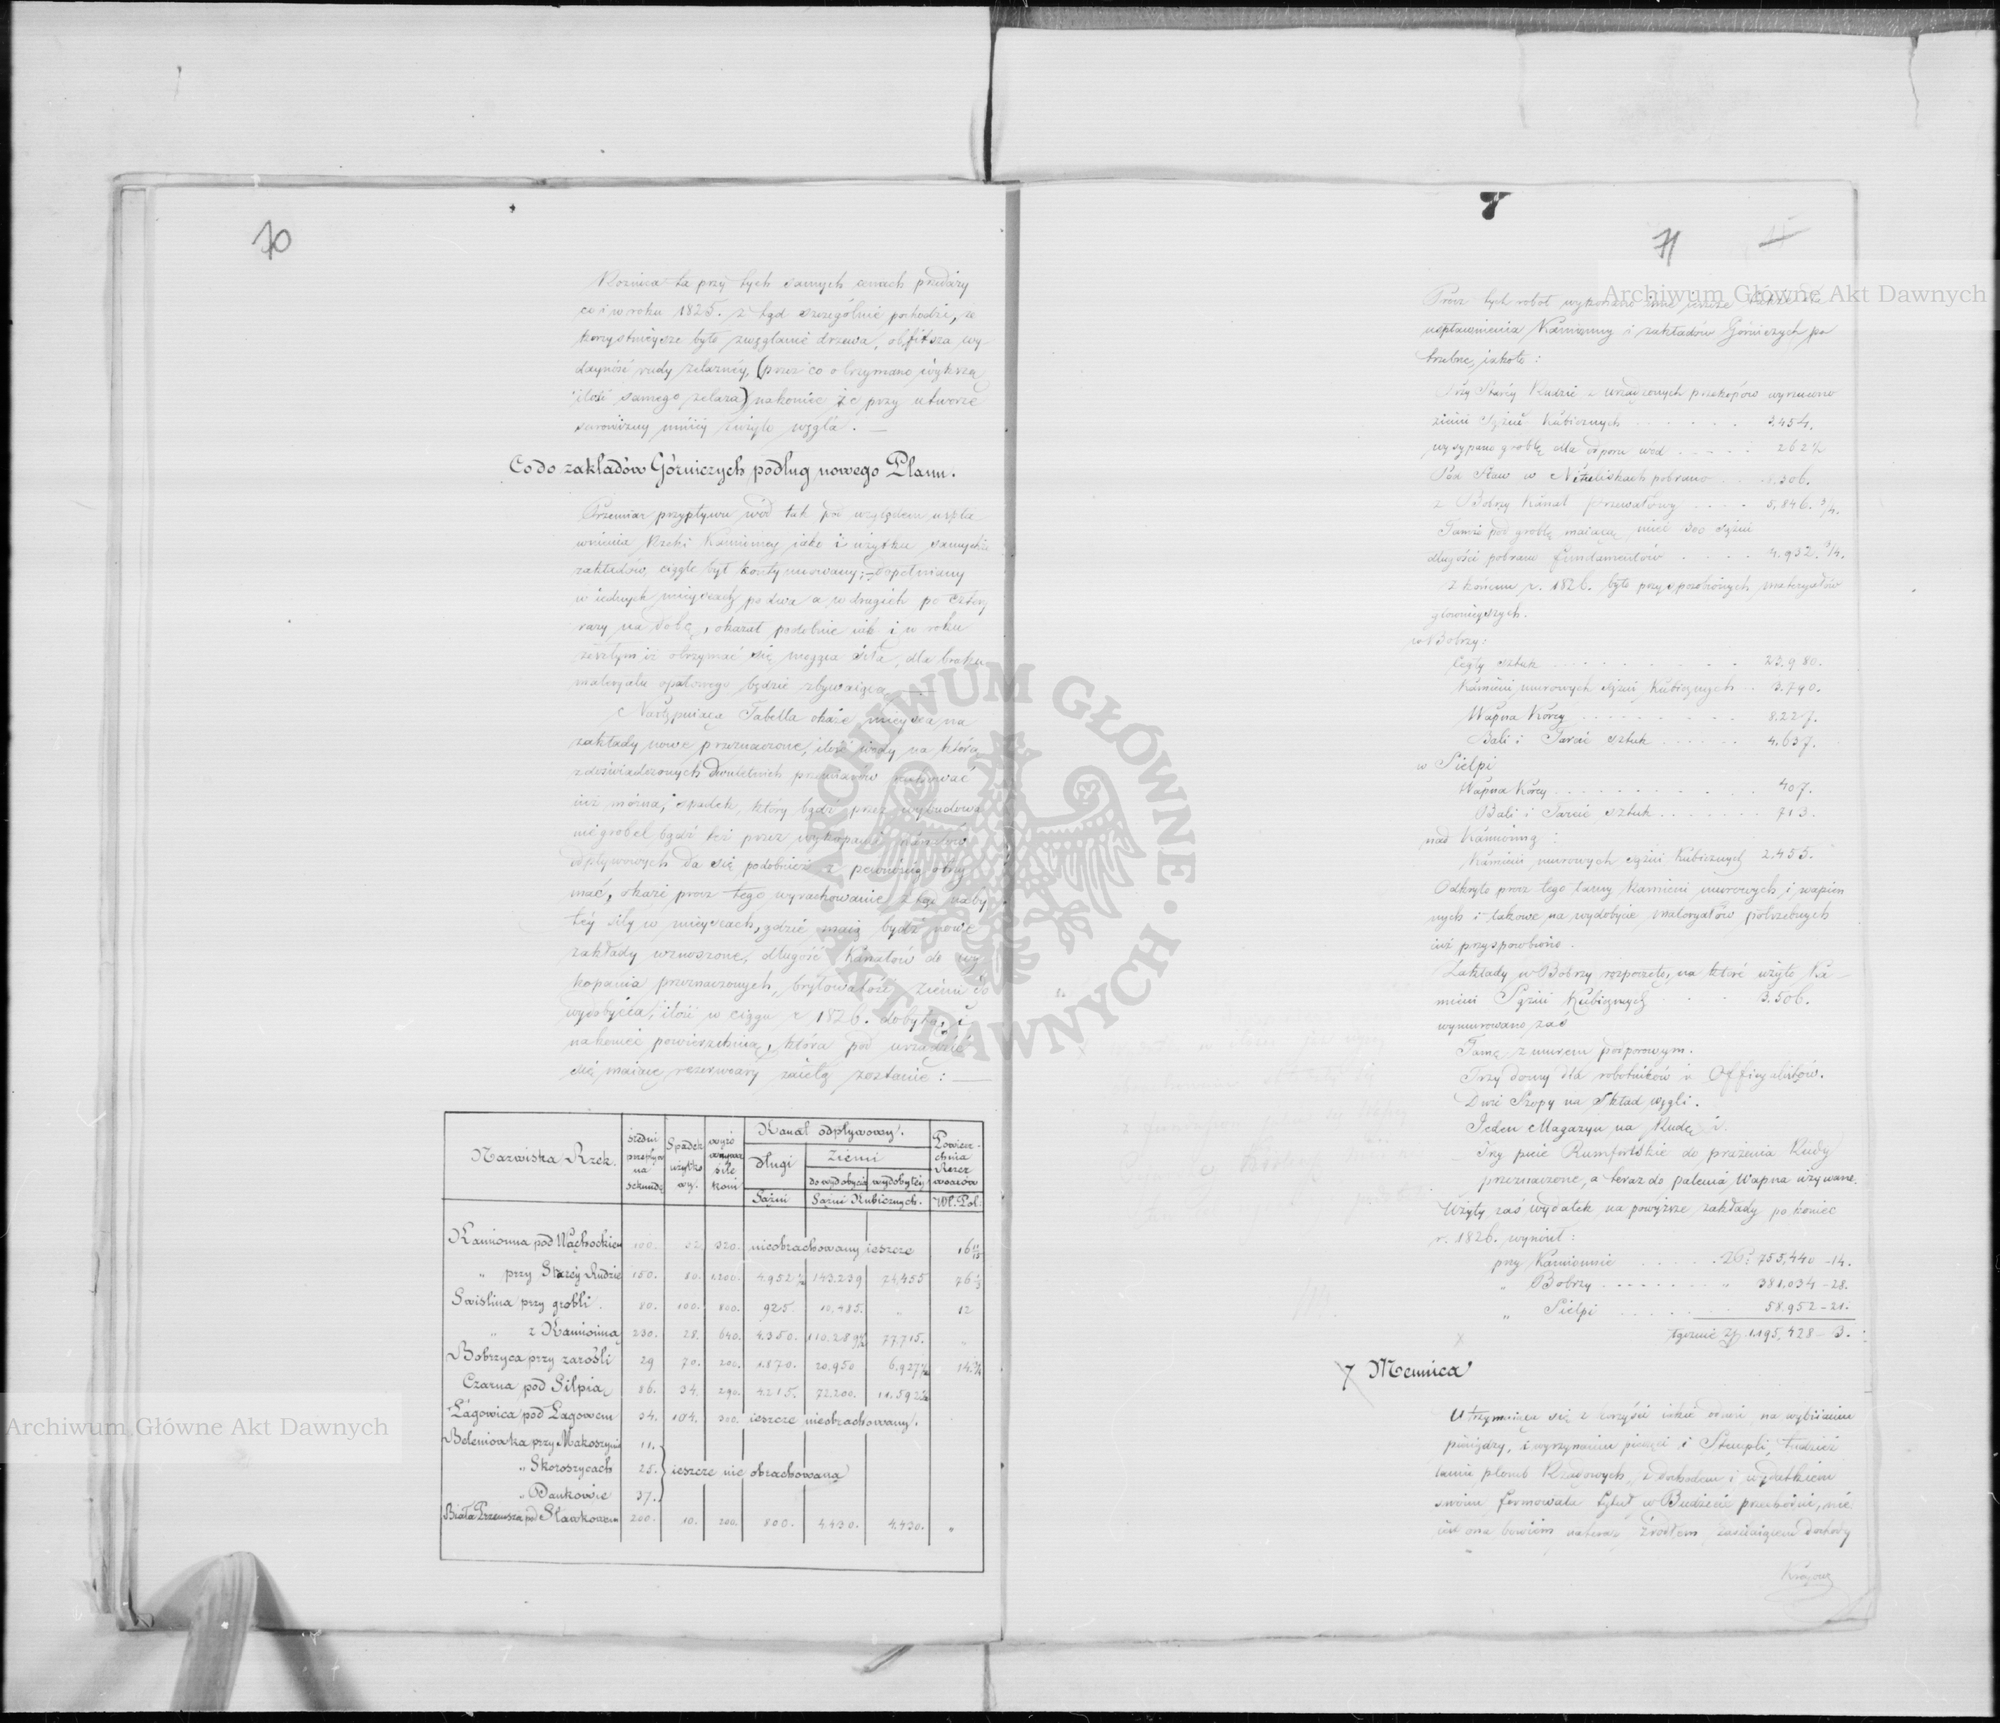 70
Różnica ta przy tych samych cenach przedaży
co i w roku 1825. z tąd szczególnie pochodzi, że
korzystnieysze było zwęglanie drzewa, obfitsza wy-
dayność rudy żelazney, (przez co otrzymano większą
ilość samego żelaza) nakoniec że przy utworze
surowizny mniey zużyto węgla. —
Co do zakładów Górniczych podług nowego Planu.
Przemiar przypływu wód tak pod względem uspła-
wnienia Rzeki Kamienney iako i użytku samychże
zakładów, ciągle był kontynuowany; dopełniany
w iednych mieyscach po dwa a w drugich po cztery
razy na dobę, okazał podobnie iak i w roku
zeszłym iż otrzymać się mogąca siła, dla braku
materyału opałowego będzie zbywaiącą. —
Następuiąca Tabella okaże mieysca na
zakłady nowe przeznaczone, ilość wody na którą
z doświadczonych dwuletnich przemiarów rachować
iuż można, spadek, który bądź przez wybudowa-
nie grobel bądź też przez wykopanie kanałów
odpływowych da się podobnież z pewnością otrzy-
mać, okaże prócz tego wyrachowanie z tąd naby-
tey siły w mieyscach, gdzie maią bydź nowe
zakłady wznoszone, długość Kanałów do wy-
kopania przeznaczonych, bryłowatość ziemi do
wydobycia, ilość w ciągu r. 1826. dobytą, i
nakoniec powierzchnią, która pod urządzić
się maiące rezerwoary zaiętą zostanie: —
Nazwiska Rzek. średni przepływ na sekundę Spadek użytkowy. wyrównywa sile koni Kanał odpływowy. Powierzchnia Rezerwoarów
długi Ziemi
do wydobycia wydobytey
Sążni Sążni Kubicznych. Wł. Pol:
Kamionna pod Wąchockiem 100. 32. 320. nieobrachowany ieszcze 16 11/15
„ przy Starey Rudzie 150. 80. 1.200. 4.952 143.239 74.455 76
Swislina przy grobli. 80. 100. 800. 925. 10.485. „ 12
„ z Kamionną 230. 28. 640. 4.350. 110.289 77.715. „
Bobrzyca przy zarośli 29 70. 200. 1.870. 20.950 6.927 14.
Czarna pod Silpią 86. 34. 290. 4.215. 72.200. 11.592
Łagowica pod Łagowem 34. 104. 300. ieszcze nieobrachowany.
Belenioska przy Makoszynie 11.
„ Skoroszycach 25. ieszcze nie obrachowaną
„ Dankowie 37.
Biała Przemsza pod Sławkowem 200. 10. 200. 800. 4.430. 4.430. „
71
Prócz tych robot wykonano inne ieszcze także do
uspławnienia Kamionny i zakładów Górniczych po
trzebne, iakoto:
Przy Starey Rudzie z urządzonych przekopów wyrzucono
ziemi Sążni Kubicznych . . . . . . 3,454.
wysypano groblę dla odporu wód . . . . . 262 ½
Pod Staw w Nietuliskach pobrano . . 5.306.
z Bobrzy Kanał przewałowy . . . . 5,846. ¾.
Tamże pod groblę maiącą mieć 300 sążni
długości pobrano fundamentów . . . . 4.932. ¾.
Z końcem r. 1826. było przysposobionych materyałów
głównieyszych.
w Bobrzy:
Cegły sztuk . . . . . . . 23.980.
Kamieni murowych sążni Kubicznych . . 3.790.
Wapna Korcy . . . . . . . 8.227.
Bali i Tarcic sztuk . . . . . . 4.637.
w Sielpi
Wapna Korcy . . . . . . . . 407.
Bali i Tarcic sztuk . . . . . . . 713.
nad Kamionną:
Kamieni murowych sążni Kubicznych 2.455.
Odkryto prócz tego łamy Kamieni murowych i wapien
nych i takowe na wydobycie materyałów potrzebnych
iuż przysposobiono.
Zakłady w Bobrzy rozpoczęte, na które użyto Ka-
mieni Sążni Kubicznych . . . 3.506.
wymurowano zaś
Tamę z murem podporowym.
Trzy domy dla robotników i Officyalistów.
Dwie Szopy na Skład węgli.
Jeden Magazyn na Rudę i
Trzy piece Rumfortskie do prażenia Rudy
przeznaczone, a teraz do palenia Wapna używane.
Użyty zaś wydatek na powyższe zakłady po koniec
r. 1826. wynosił:
przy Kamionnie . . . . . Zł: 755,440 - 14.
„ Bobrzy . . . . . . . „ 381,034 - 28.
„ Sielpi . . . . . . . 58,952 - 21.
łącznie Zł 1,195,428 - 3.
7 Mennica
Utrzymuiąca się z korzyści iakie odnosi na wybiianiu
pieniędzy, i wyrzynaniu pieczęci i Stempli, tudzież
laniu plomb Rządowych, z dochodem i wydatkiem
swoim formowała tytuł w Budżecie przechodni, nie
iest ona bowiem naturą źródłem zasilaiącem dochody
Kraiowe
Archiwum Główne Akt Dawnych
Archiwum Główne Akt Dawnych
ARCHIWUM GŁÓWNE · AKT DAWNYCH ·